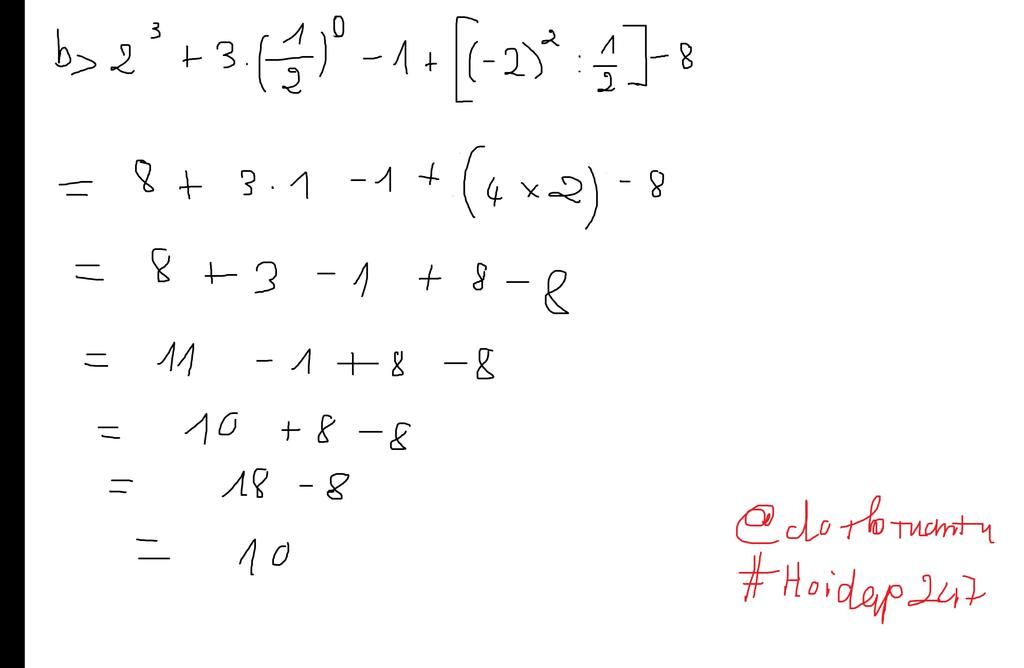 b> 2^3 + 3.(1/2)^0 - 1 + [(-2)^2 : 1/2] - 8
= 8 + 3.1 - 1 + (4 × 2) - 8
= 8 + 3 - 1 + 8 - 8
= 11 - 1 + 8 - 8
= 10 + 8 - 8
= 18 - 8
= 10
#Hoidap247